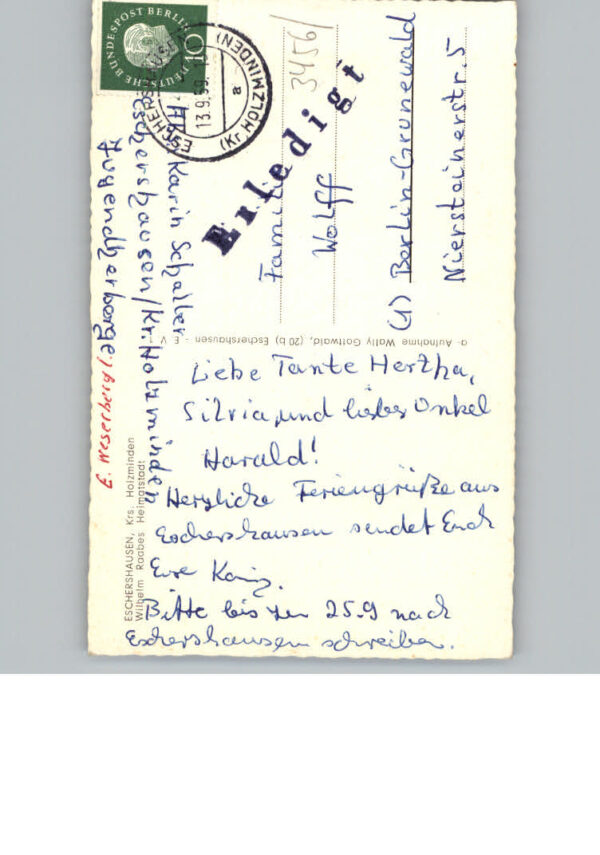 DEUTSCHE BUNDESPOST BERLIN
10
ESCHERSHAUSEN
(Kr. HOLZMINDEN)
13.9.59
a
Abs. Karin Schaller
Eschershausen/Kr. Holzminden
Jugendherberge
E. Weserbergl.
3456/
Erledigt
Familie
Wolff
(1) Berlin-Grunewald
Niersteinerstr. 5
a- Aufnahme Wally Gottwald, (20 b) Eschershausen - E V
ESCHERSHAUSEN, Krs. Holzminden
Wilhelm Raabes Heimatstadt
Liebe Tante Hertha,
Silvia, und lieber Onkel
Harald!
Herzliche Feriengrüße aus
Eschershausen sendet Euch
Eure Karin.
Bitte bis zum 25.9 nach
Eschershausen schreiben.